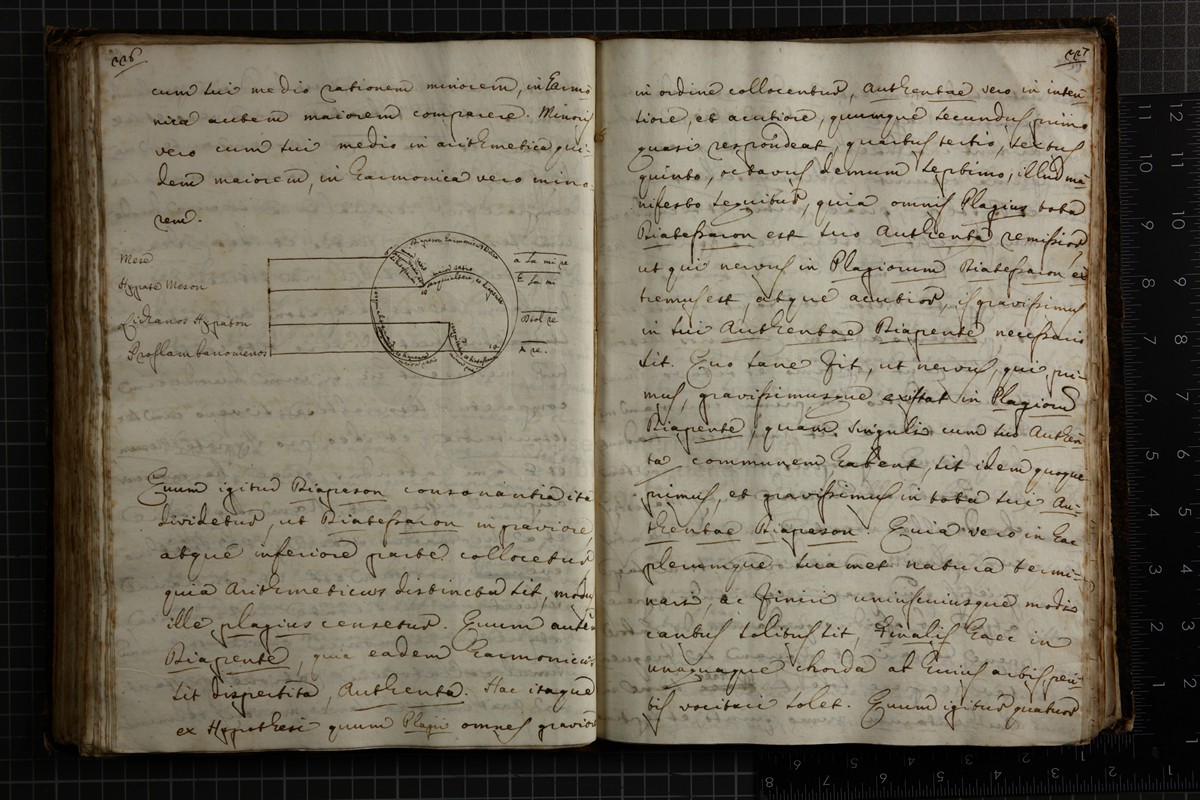 226
cum sui medio rationem minorem, in Harmo
nica autem maiorem comparere. Minoris
vero cum sui medio in arithmetica qui-
dem maiorem, in harmonica vero mino-
rem.
Mese
Hypate Meson
Lichanos Hypaton
Proslambanomenos
a la mi re
E la mi
D sol re
A re.
Quum igitur Diapason consonantia ita
dividetur, ut Diatessaron in graviore,
atque inferiore parte collocetur
quia Arithmeticws distincta sit, modus
ille plagius censetur. Quum autem
Diapente, quia eadem harmonicws
sit dispertita, Authenta. Hac itaque
ex Hypothesi quum Plagii omnes graviore
227
in ordine collocentur, Authentae vero in inten
tiore, et acutiore, quumque secundus primo
quasi respondeat, quartus tertio, sextus
quinto, octavus demum septimo, illud ma
nifesto sequitur, quia omnis Plagius tota
Diatessaron est suo Authenta remissior
ut qui nervus in Plagiorum Diatessaron ex
tremus est, atque acutior, is gravissimus
in sui Authentae Diapente necessario
sit. Quo sane fit, ut nervus, qui pri-
mus, gravissimusque existat in Plagiorum
Diapente, quam singuli cum suo Authen
ta communem habent sit idem quoque
primus, et gravissimus in tota sui Au-
thentae Diapason. Quia vero in hac
plerumque suamet natura termi-
nari, ac finiri uniuscuiusque modis
cantus solitus sit, Finalis haec in
unaquaque chorda ab huius artis peri-
tis vocitari solet. Quum igitur quatuor